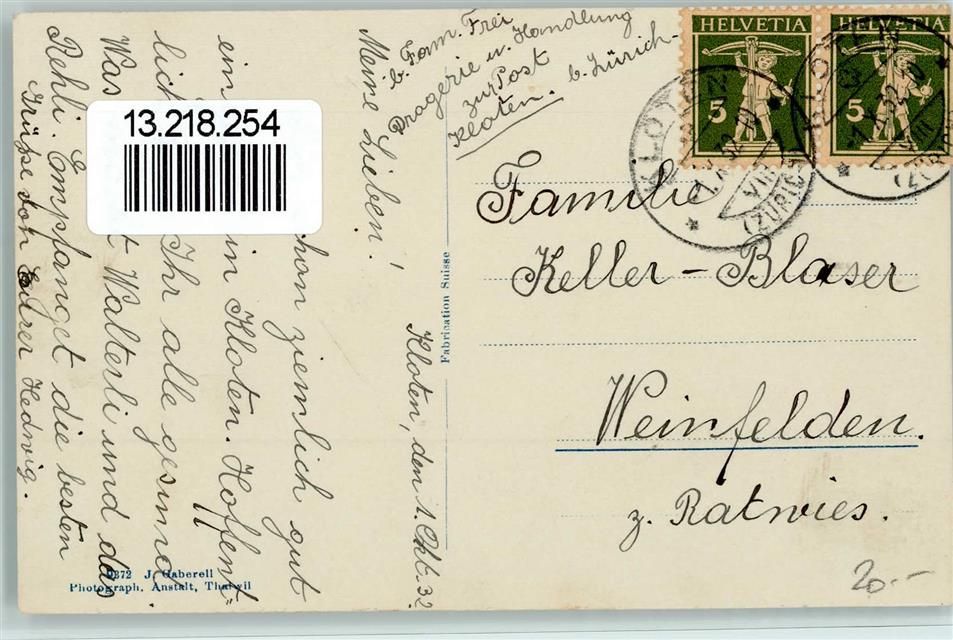 b. Fam. Frei
Drogerie u. Handlung
zur Post
Kloten. b. Zürich-
HELVETIA HELVETIA
5 5
KLOTEN
VIII
(ZÜRICH)
KLOTEN
VIII
(ZÜRICH)
13.218.254
Kloten, den 1. Okt. 32
Meine Lieben!
hon ziemlich gut
ein in Kloten. Hoffent=
lich Ihr alle gesund.
Was t Walterli und das
Rehli. Empfanget die besten
Grüsse von Eurer Hedwig.
Fabrication Suisse
Familie
Keller-Blaser
Weinfelden.
z. Ratwies.
20.-
9372 J. Gaberell
Photograph. Anstalt, Thalwil